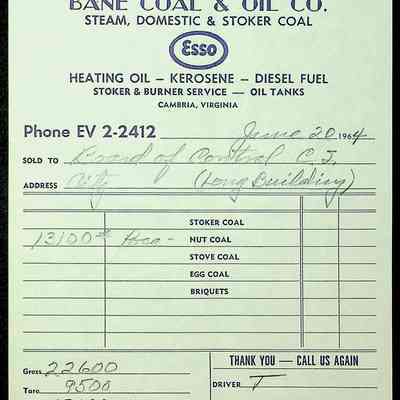 BANE COAL & OIL CO.
STEAM, DOMESTIC & STOKER COAL
Esso
HEATING OIL – KEROSENE – DIESEL FUEL
STOKER & BURNER SERVICE — OIL TANKS
CAMBRIA, VIRGINIA
Phone EV 2-2412 June 20, 1964
SOLD TO Board of Control C.I.
ADDRESS City (Long Building)
STOKER COAL
13100# Poca - NUT COAL
STOVE COAL
EGG COAL
BRIQUETS
Gross 22600
Tare 9500
THANK YOU — CALL US AGAIN
DRIVER T